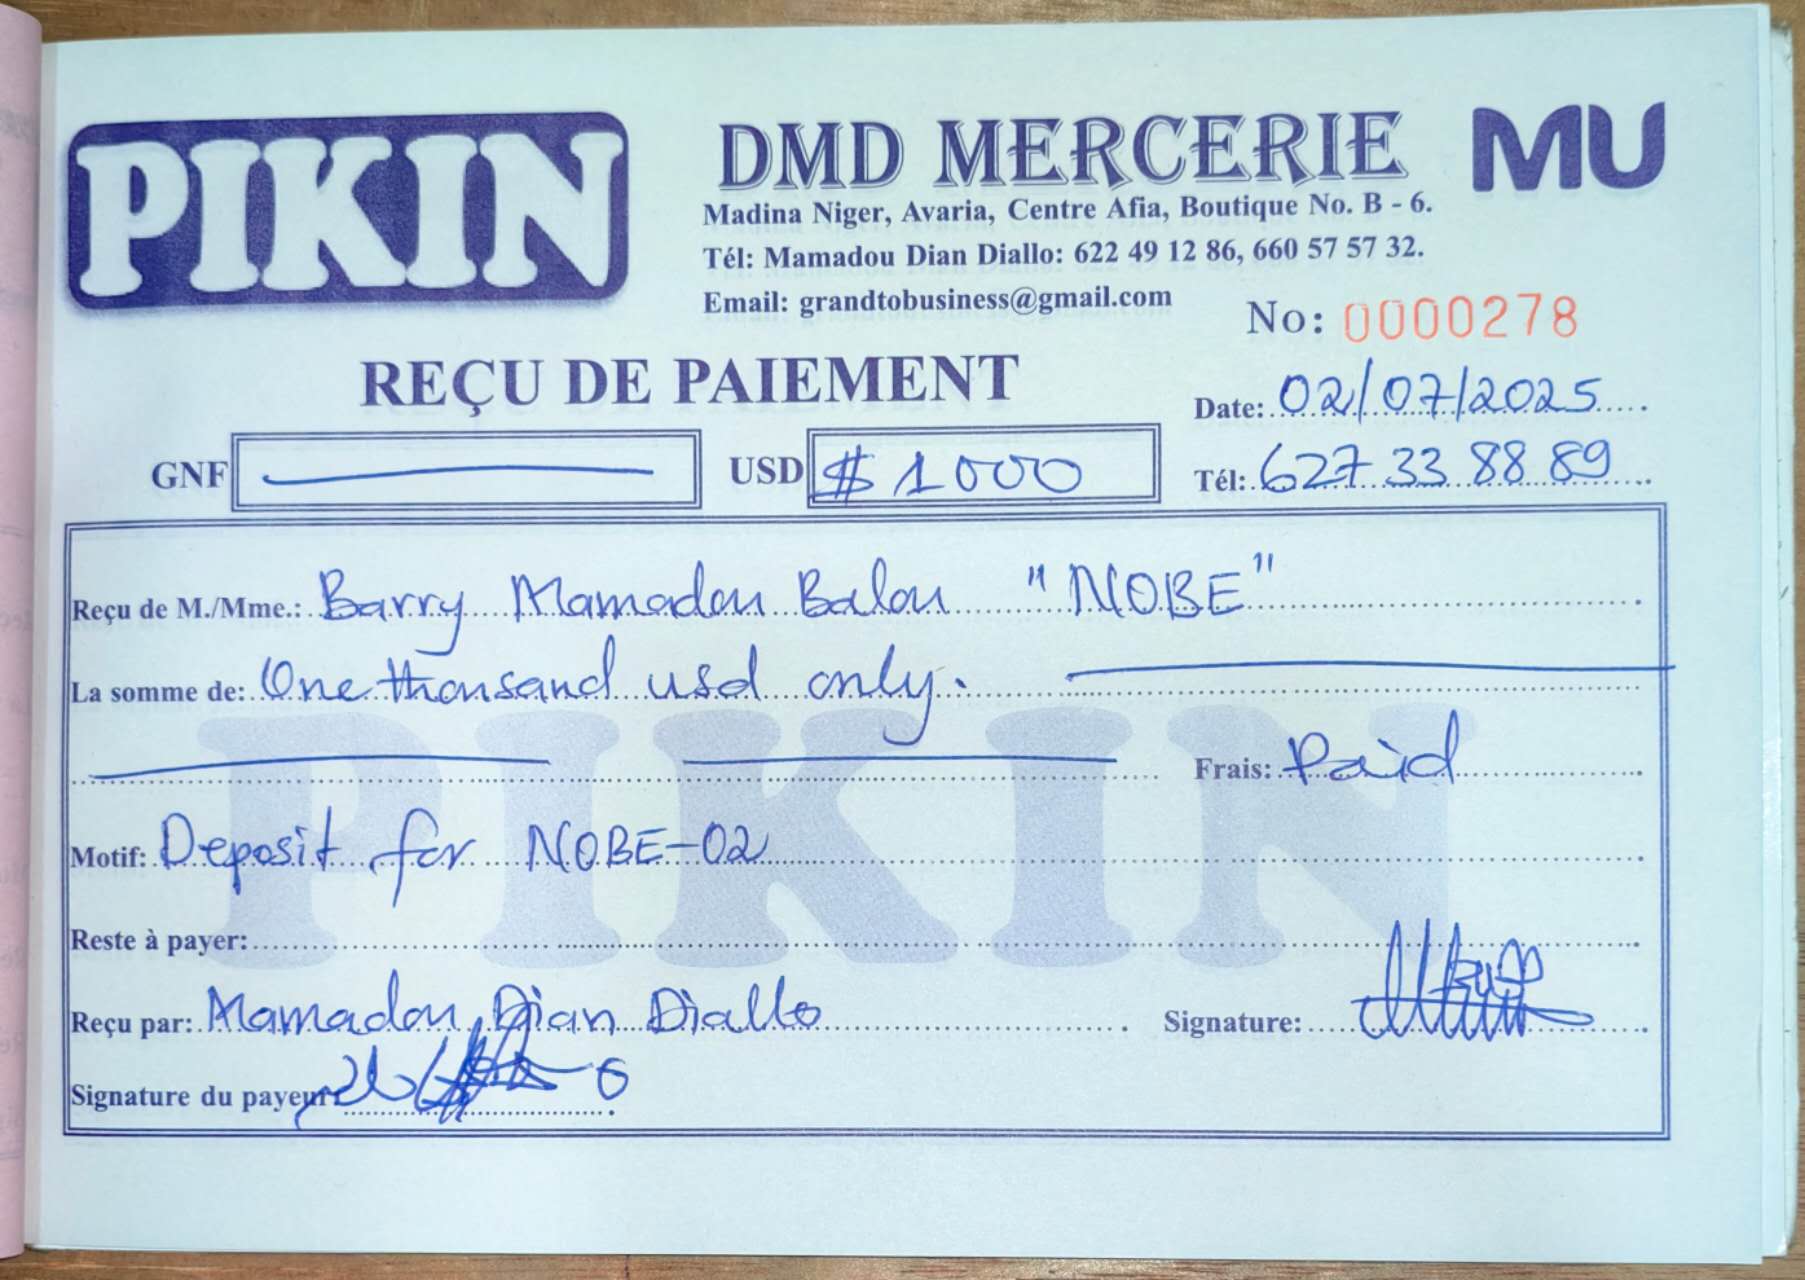 PIKIN
DMD MERCERIE MU
Madina Niger, Avaria, Centre Afia, Boutique No. B - 6.
Tél: Mamadou Dian Diallo: 622 49 12 86, 660 57 57 32.
Email: grandtobusiness@gmail.com
No: 0000278
REÇU DE PAIEMENT
Date: 02/07/2025
GNF USD $ 1000 Tél: 627 33 88 89
Reçu de M./Mme.: Barry Mamadou Balou "NOBE"
La somme de: One thousand usd only.
Frais: Paid
Motif: Deposit for NOBE-02
PIKIN
Reste à payer:
Reçu par: Mamadou Dian Diallo Signature:
Signature du payeur